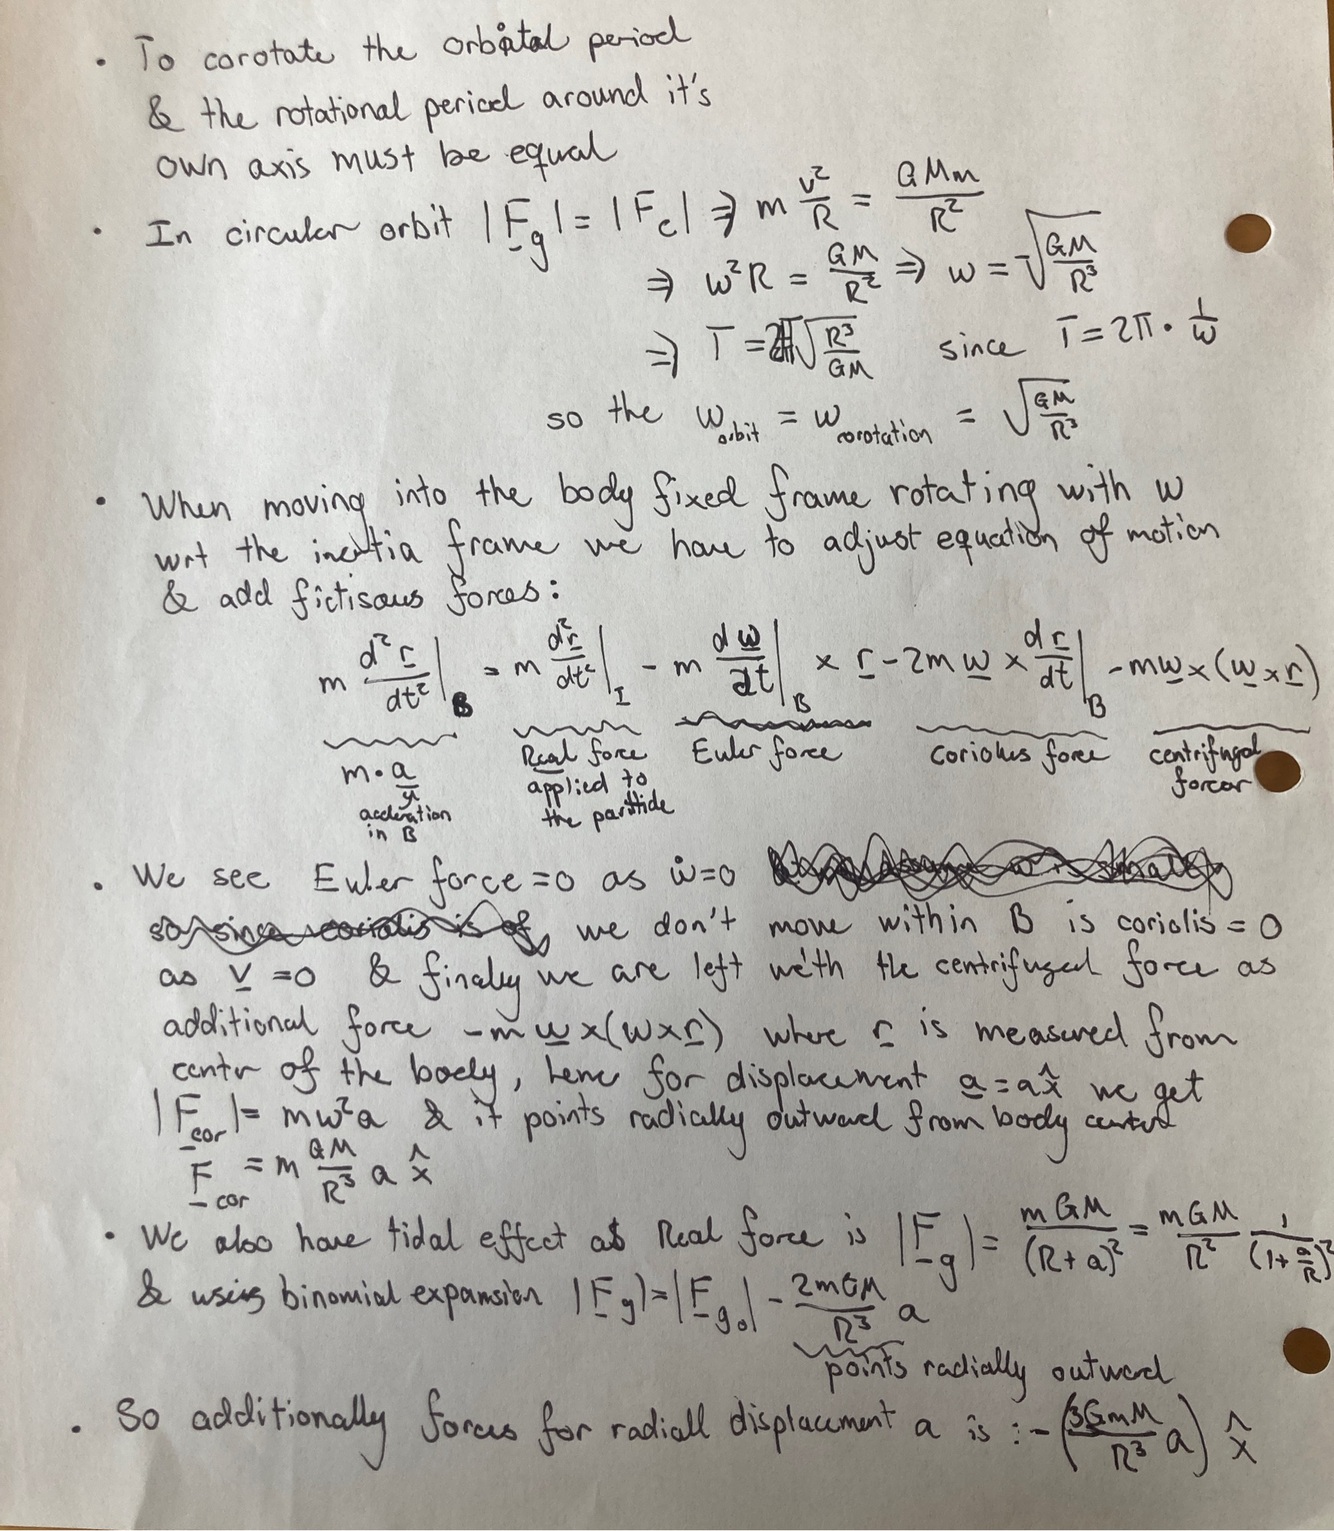 • To corotate the orbital period
& the rotational period around it's
own axis must be equal
• In circular orbit |F_g| = |F_c| ⇒ m v²/R = GMm/R²
⇒ w²R = GM/R² ⇒ w = √(GM/R³)
⇒ T = 2π√(R³/GM) since T = 2π · 1/w
so the w_orbit = w_corotation = √(GM/R³)
• When moving into the body fixed frame rotating with w
wrt the inertia frame we have to adjust equation of motion
& add fictisous forces:
m d²r/dt²|_B = m d²r/dt²|_I - m dw/dt|_B × r - 2m w × dr/dt|_B - mw × (w × r)
m · a Real force Euler force Coriolus force centrifugal
accleration applied to forcer
in B the particle
• We see Euler force = 0 as ẇ = 0
we don't move within B is coriolis = 0
as v = 0 & finaley we are left with the centrifugel force as
additional force -m w × (w × r) where r is measured from
centr of the boely, henc for displacement a = a x̂ we get
|F_cor| = mw²a & it points radially outward from body center
F_cor = m GM/R³ a x̂
• We also have tidal effect as Real force is |F_g| = mGM/(R+a)² = mGM/R² 1/(1+a/R)²
& using binomial expansion |F_g| = |F_g₀| - 2mGM/R³ a
points radially outward
• So additionally forces for radiall displacement a is : - (3GmM/R³ a) x̂